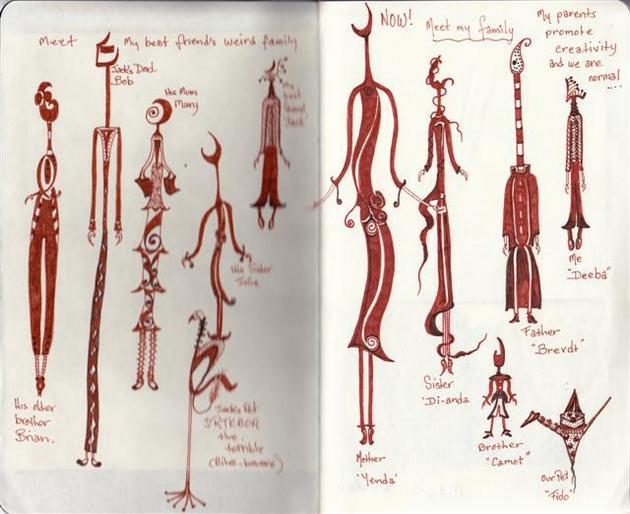 Meet My best friend's weird family
Jack's Dad
Bob
the Mom
Mary
my
best
friend
"Jack"
His older
brother
Brian.
His Sister
Julie
Jack's Pet
the
terrible
(Bites-beware)
NOW!
Meet my family
My parents
promote
creativity
and we are
normal
....
Me
"Deeba"
Father
"Brevdt"
Sister
"Di-anda
Mother
"Yenda"
Brother
"Camot"
our Pet
"Fido"